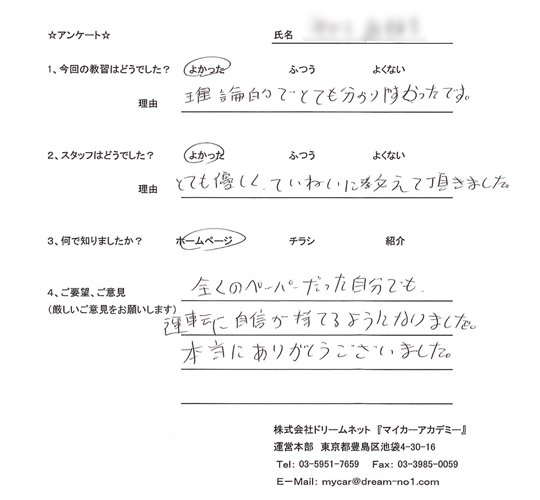 ☆アンケート☆
氏名
1、今回の教習はどうでした? よかった ふつう よくない
理由 理論的でとても分かり易かったです。
2、スタッフはどうでした? よかった ふつう よくない
理由 とても優しく、ていねいに教えて頂きました。
3、何で知りましたか? ホームページ チラシ 紹介
4、ご要望、ご意見 全くのペーパーだった自分でも、
(厳しいご意見をお願いします) 運転に自信が持てるようになりました。
本当にありがとうございました。
株式会社ドリームネット 『マイカーアカデミー』
運営本部 東京都豊島区池袋4-30-16
Tel: 03-5951-7659 Fax: 03-3985-0059
E-Mail: mycar@dream-no1.com